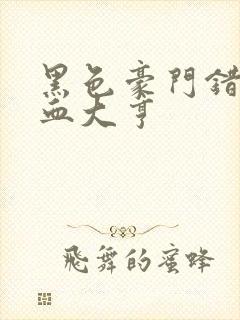 黑色豪門錯
血大亨
飛舞的蜜蜂